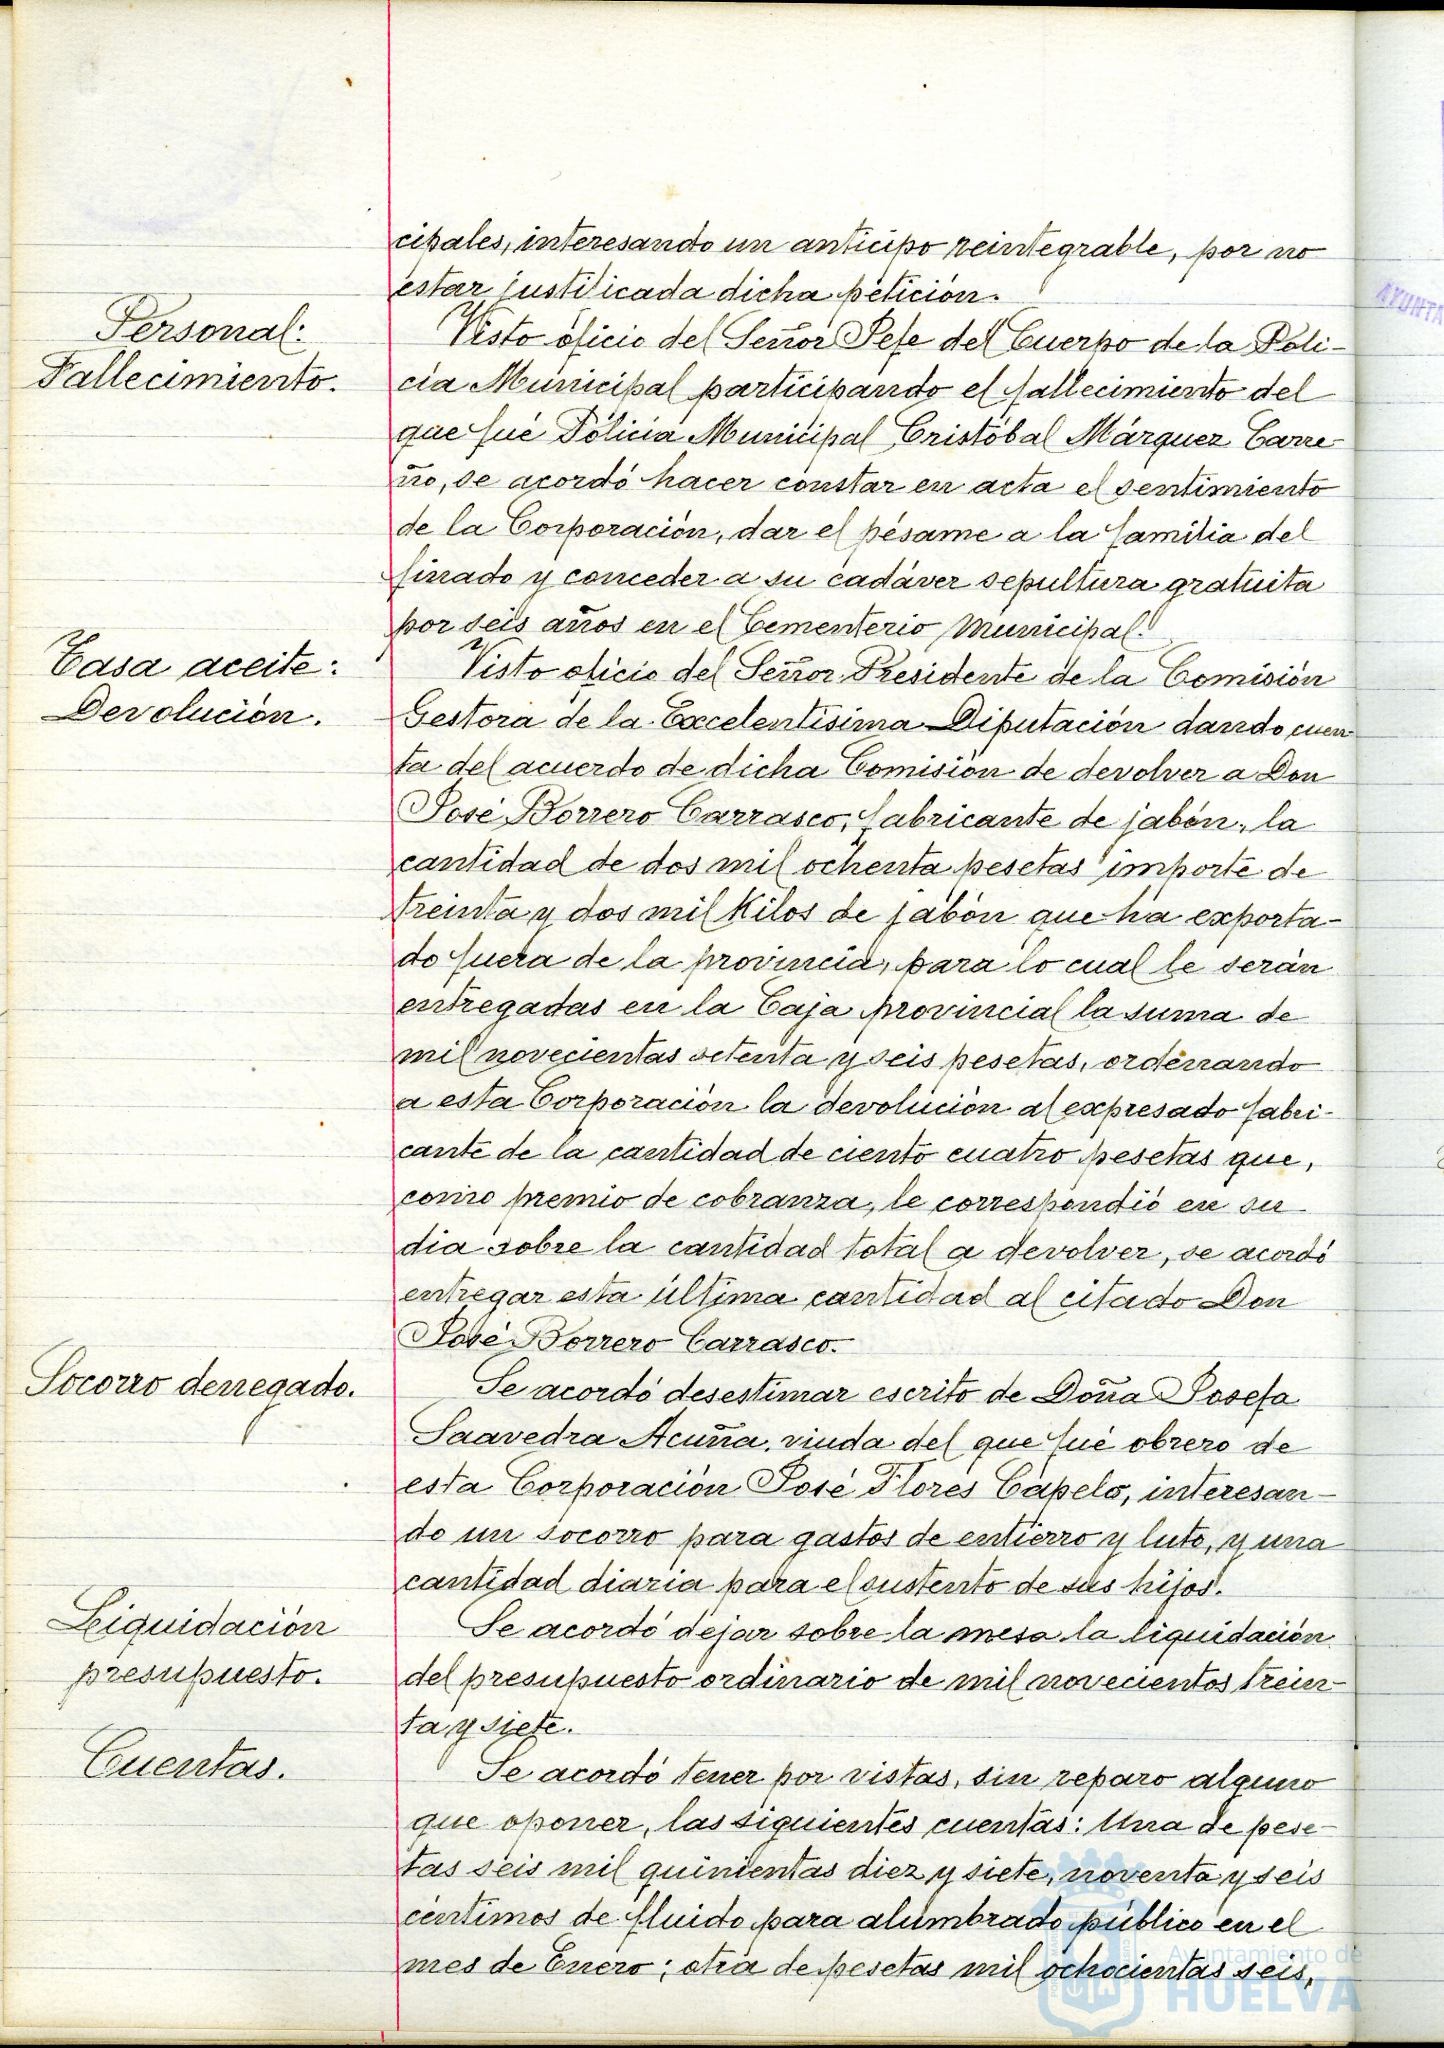 cipales, interesando un anticipo reintegrable, por no
estar justificada dicha petición.
Personal:
Fallecimiento.
Visto oficio del Señor Jefe del Cuerpo de la Poli-
cía Municipal participando el fallecimiento del
que fué Policía Municipal Cristóbal Márquez Carre-
ño, se acordó hacer constar en acta el sentimiento
de la Corporación, dar el pésame a la familia del
finado y conceder a su cadáver sepultura gratuita
por seis años en el Cementerio Municipal.
Tasa aceite:
Devolución.
Visto oficio del Señor Presidente de la Comisión
Gestora de la Excelentísima Diputación dando cuen-
ta del acuerdo de dicha Comisión de devolver a Don
José Borrero Carrasco, fabricante de jabón, la
cantidad de dos mil ochenta pesetas importe de
treinta y dos mil kilos de jabón que ha exporta-
do fuera de la provincia, para lo cual le serán
entregadas en la Caja provincial la suma de
mil novecientas setenta y seis pesetas, ordenando
a esta Corporación la devolución al expresado fabri-
cante de la cantidad de ciento cuatro pesetas que,
como premio de cobranza, le correspondió en su
dia sobre la cantidad total a devolver, se acordó
entregar esta última cantidad al citado Don
José Borrero Carrasco.
Socorro denegado.
Se acordó desestimar escrito de Doña Josefa
Saavedra Acuña, viuda del que fué obrero de
esta Corporación José Flores Capelo, interesan-
do un socorro para gastos de entierro y luto, y una
cantidad diaria para el sustento de sus hijos.
Liquidación
presupuesto.
Se acordó dejar sobre la mesa la liquidación
del presupuesto ordinario de mil novecientos trein-
ta y siete.
Cuentas.
Se acordó tener por vistas, sin reparo alguno
que oponer, las siguientes cuentas: Una de pese-
tas seis mil quinientas diez y siete, noventa y seis
céntimos de fluido para alumbrado público en el
mes de Enero; otra de pesetas mil ochocientas seis,
Ayuntamiento de
HUELVA
AYUNTA